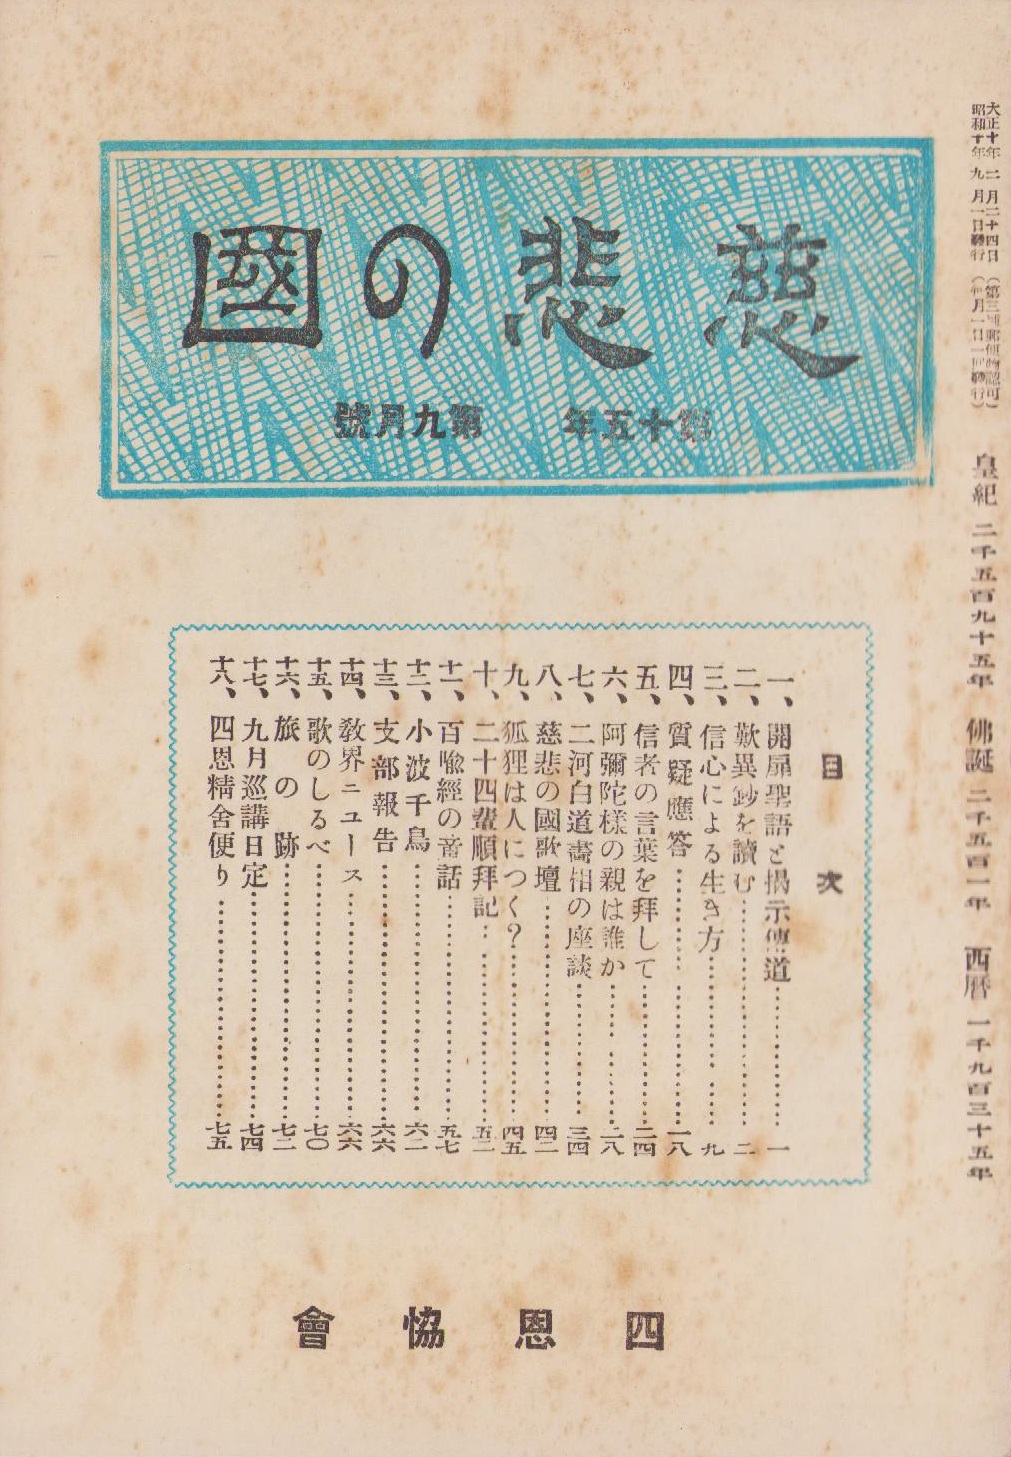 大正十年二月二十四日(第三種郵便物認可)
昭和十年九月一日發行(毎月一日一回發行)
皇紀 二千五百九十五年 佛誕 二千五百一年 西曆 一千九百三十五年
慈悲の國
第十五年 第九月號
目次
一、開扉聖語と揭示傳道……………一
二、歎異鈔を讀む……………二
三、信心による生き方……………九
四、質疑應答……………一八
五、信者の言葉を拜して……………二四
六、阿彌陀樣の親は誰か……………二八
七、二河白道畵相の座談……………三四
八、慈悲の國歌壇……………四二
九、狐狸は人につく?……………四五
十、二十四輩順拜記……………五二
十一、百喩經の音話……………五七
十二、小波千鳥……………六二
十三、支部報告……………六六
十四、敎界ニュース……………六六
十五、歌のしるべ……………七〇
十六、旅の跡……………七二
十七、九月巡講日定……………七四
十八、四恩精舍便り……………七五
四恩協會